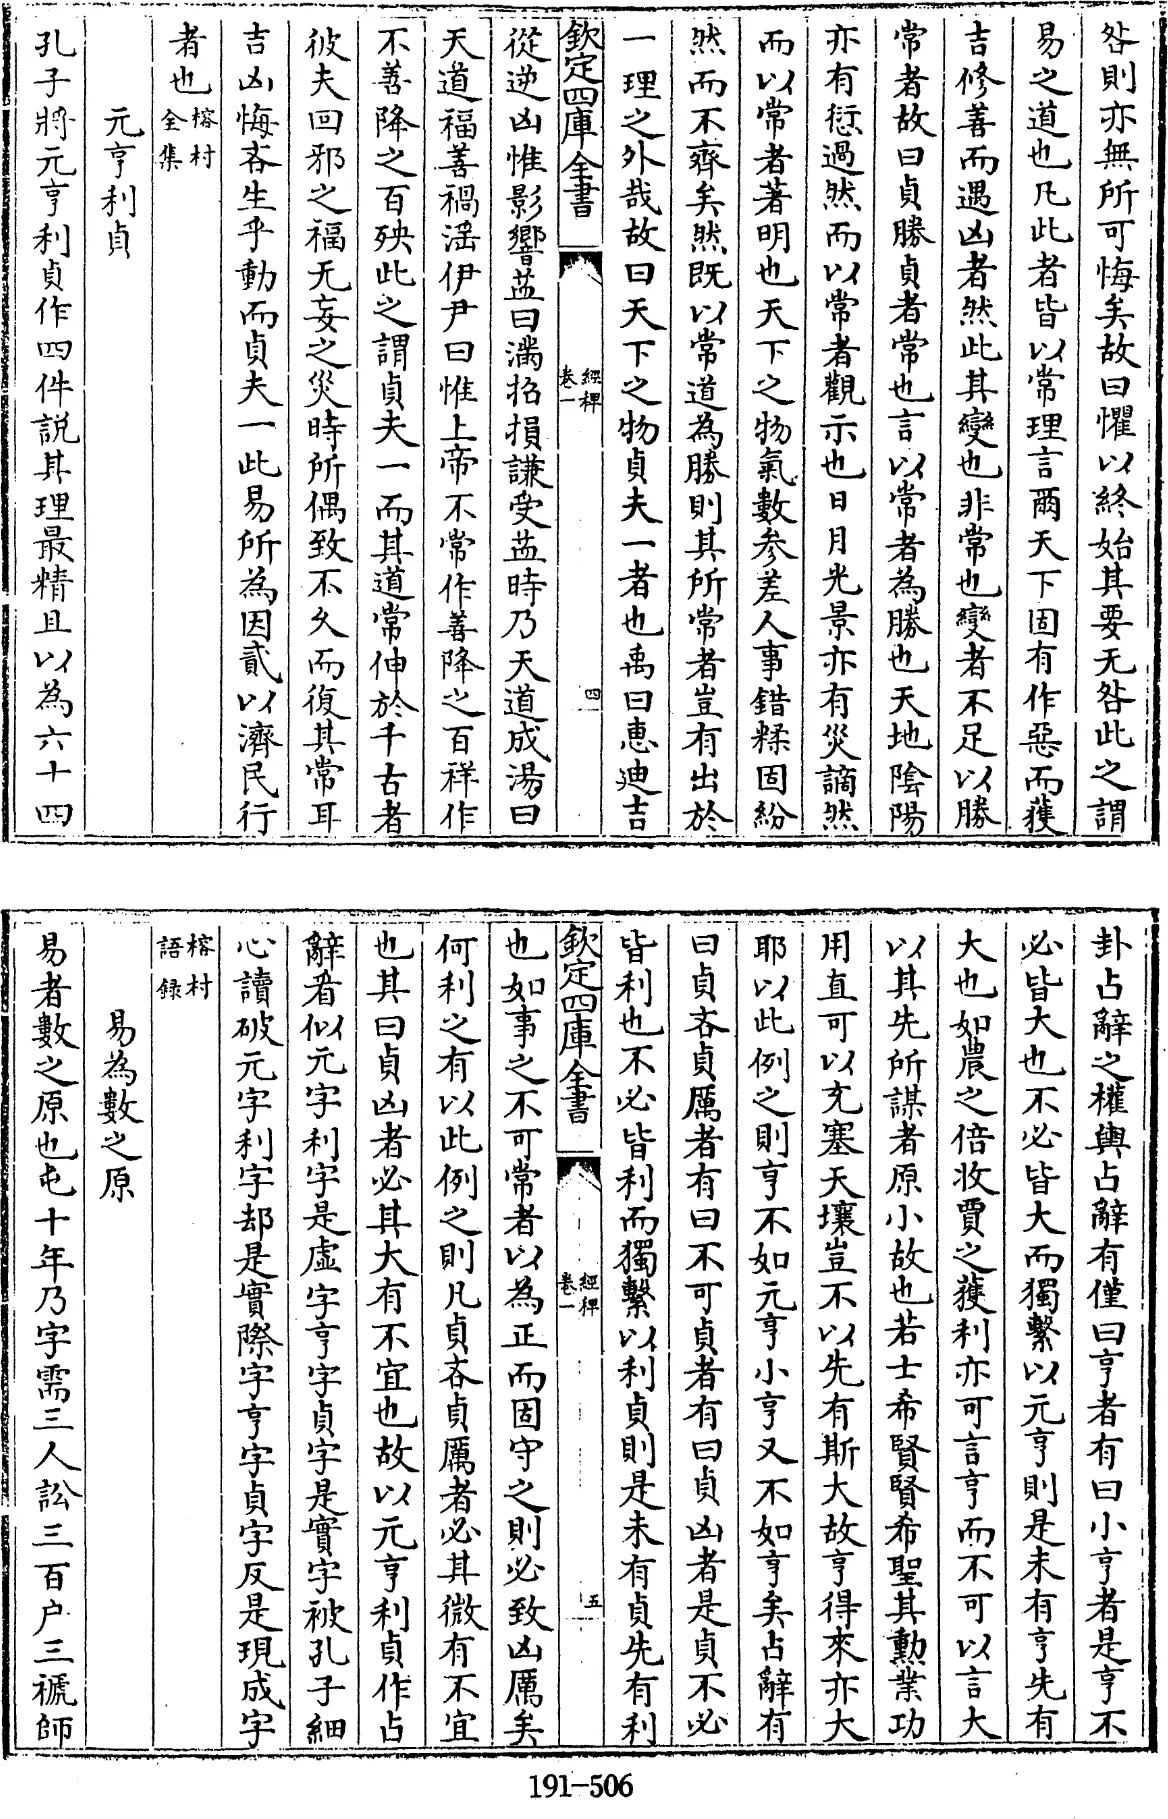 咎則亦無所可悔矣故曰懼以終始其要无咎此之謂
易之道也凡此者皆以常理言爾天下固有作惡而獲
吉修善而遇凶者然此其變也非常也變者不足以勝
常者故曰貞勝貞者常也言以常者為勝也天地陰陽
亦有愆過然而以常者觀示也日月光景亦有災謫然
而以常者著明也天下之物氣數參差人事錯糅固紛
然而不齊矣然既以常道為勝則其所常者豈有出於
一理之外哉故曰天下之物貞夫一者也禹曰惠迪吉
欽定四庫全書
經稗
卷一
四
從逆凶惟影響益曰滿招損謙受益時乃天道成湯曰
天道福善禍淫伊尹曰惟上帝不常作善降之百祥作
不善降之百殃此之謂貞夫一而其道常伸於千古者
彼夫回邪之福无妄之災時所偶致不久而復其常耳
吉凶悔吝生乎動而貞夫一此易所為因貳以濟民行
者也榕村
全集
元亨利貞
孔子將元亨利貞作四件説其理最精且以為六十四
卦占辭之權輿占辭有僅曰亨者有曰小亨者是亨不
必皆大也不必皆大而獨繫以元亨則是未有亨先有
大也如農之倍收賈之獲利亦可言亨而不可以言大
以其先所謀者原小故也若士希賢賢希聖其勳業功
用直可以充塞天壤豈不以先有斯大故亨得來亦大
耶以此例之則亨不如元亨小亨又不如亨矣占辭有
曰貞吝貞厲者有曰不可貞者有曰貞凶者是貞不必
皆利也不必皆利而獨繫以利貞則是未有貞先有利
欽定四庫全書
經稗
卷一
五
也如事之不可常者以為正而固守之則必致凶厲矣
何利之有以此例之則凡貞吝貞厲者必其微有不宜
也其曰貞凶者必其大有不宜也故以元亨利貞作占
辭看似元字利字是虛字亨字貞字是實字被孔子細
心讀破元字利字却是實際字亨字貞字反是現成字
榕村
語錄
易為數之原
易者數之原也屯十年乃字需三人訟三百户三褫師
191-506